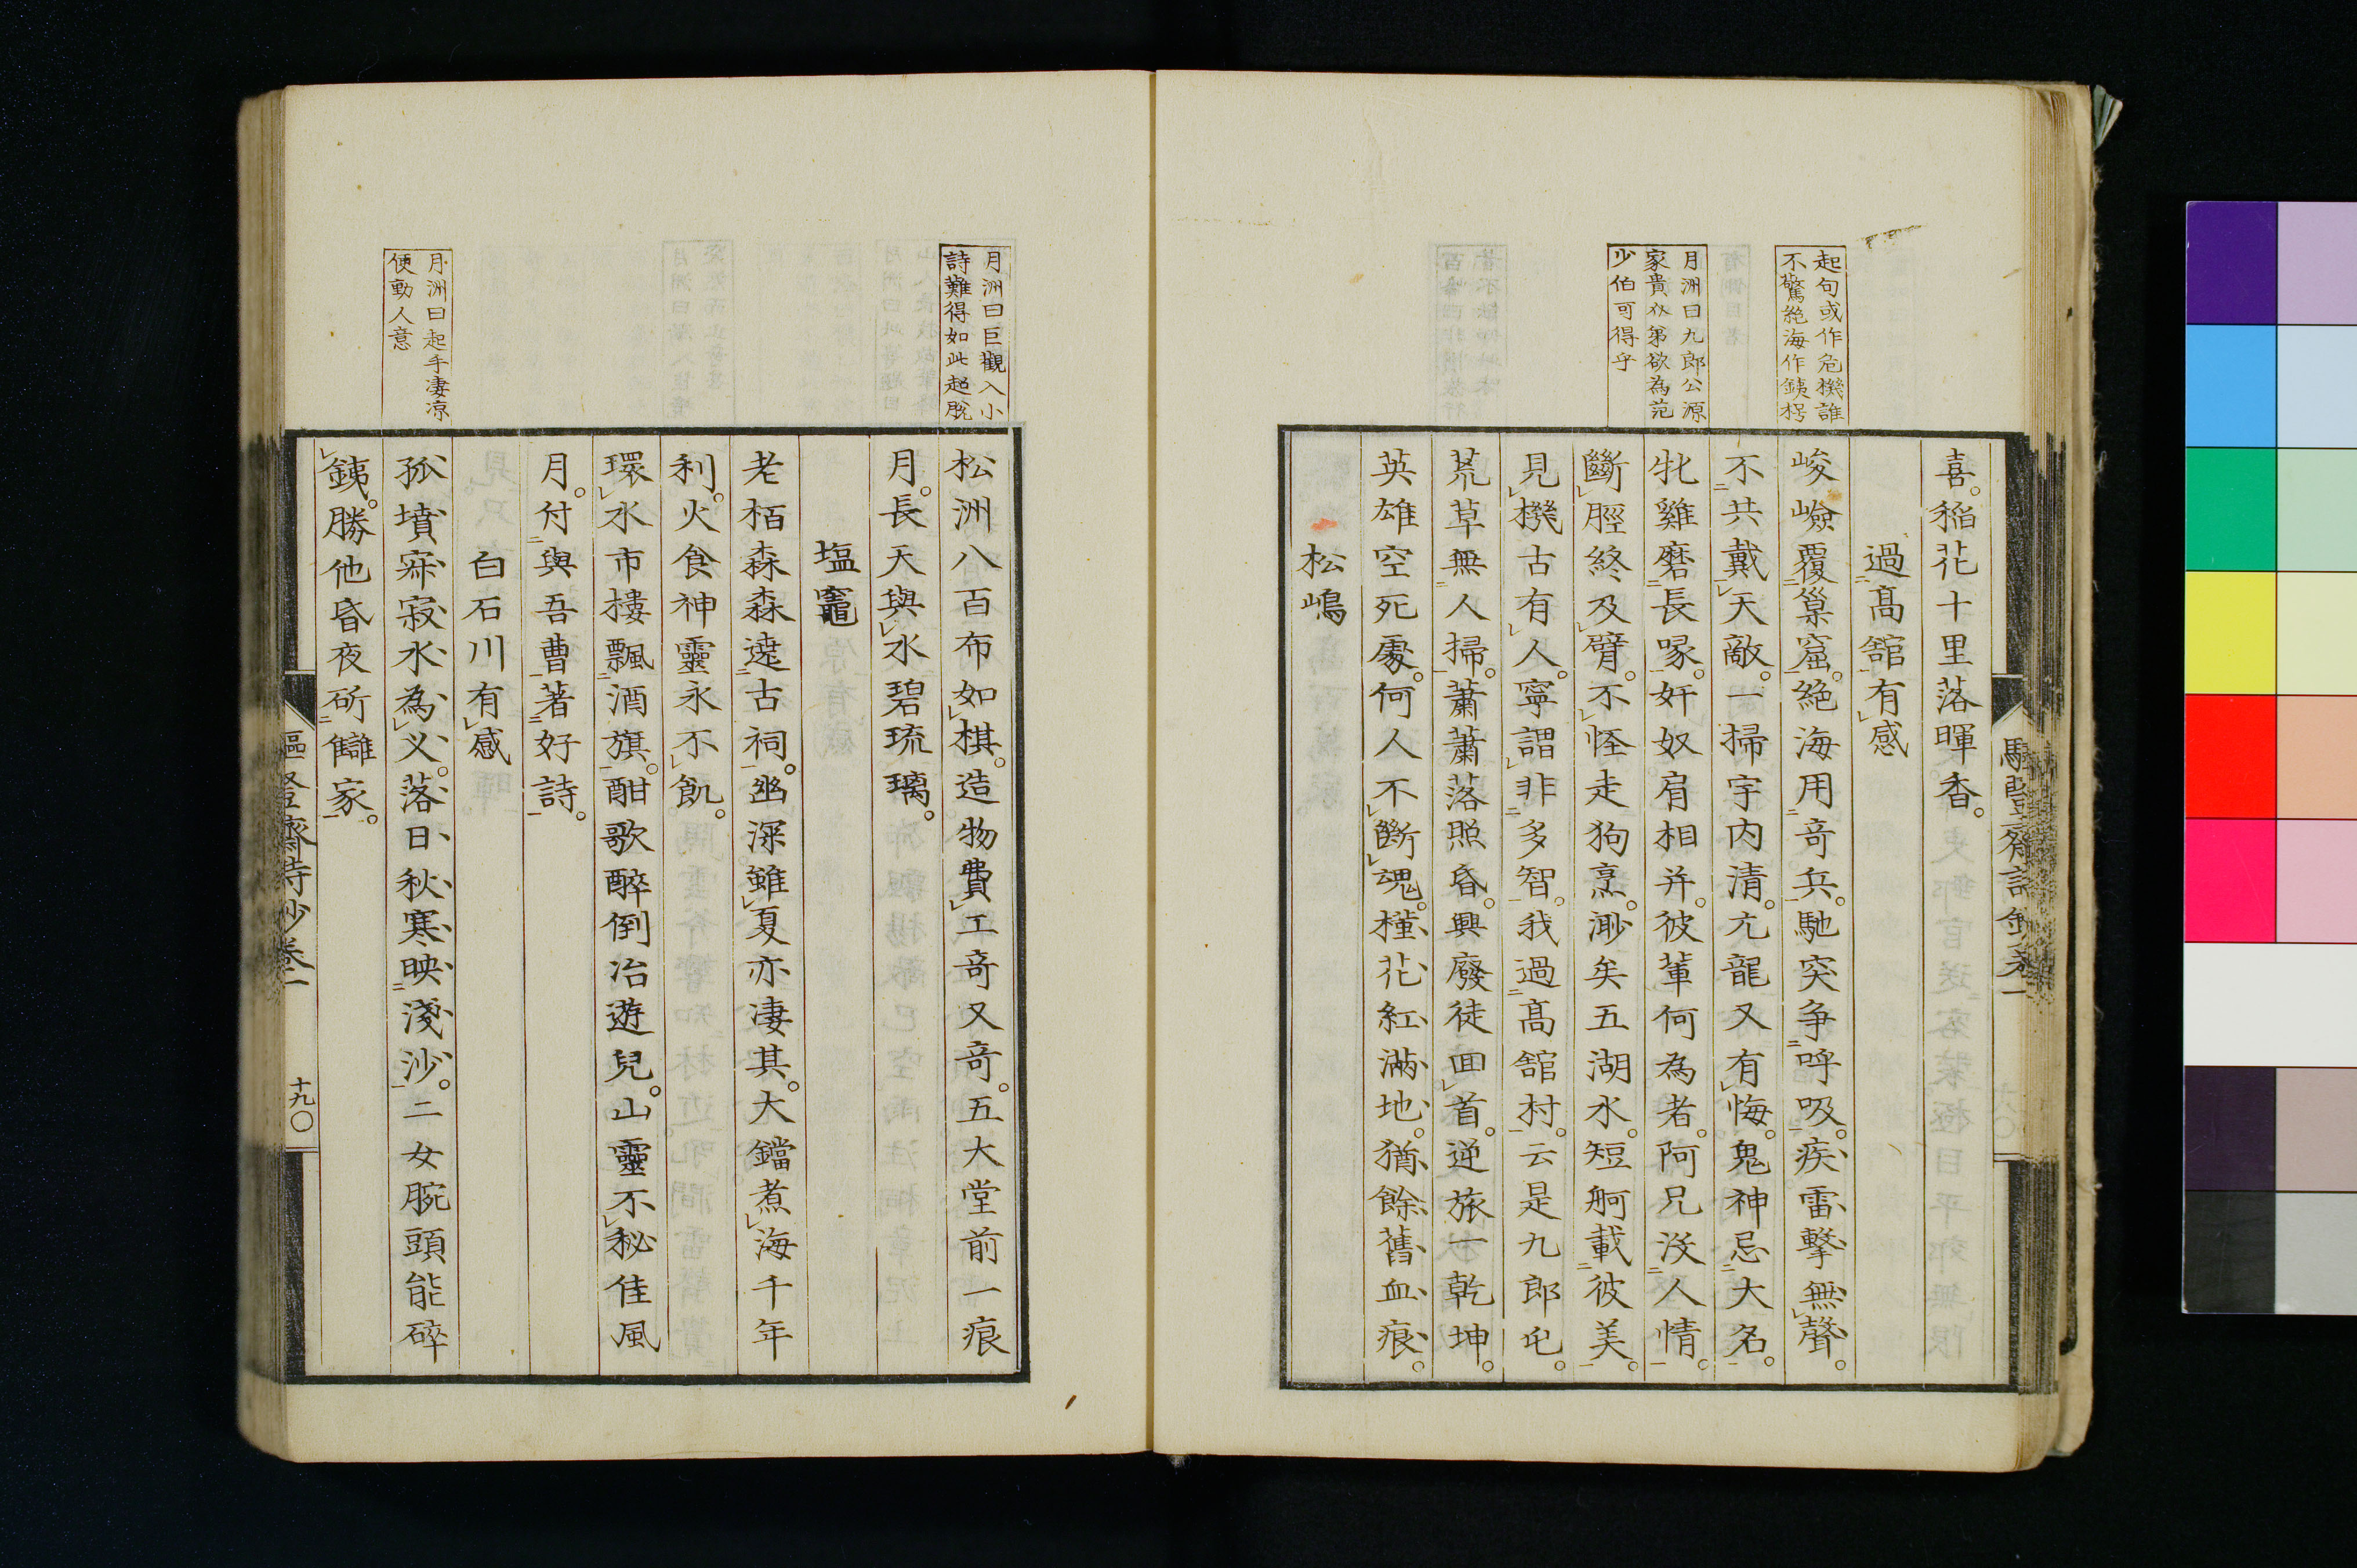 起句或作危機誰
不驚絶海作銕柺
月洲曰九郎公源
家貴介第欲為范
少伯可得乎
喜。稲花十里落暉香。
過高舘有感
峻嶮覆巢窟。絶海用竒兵。馳突争呼吸。疾雷擊無聲。
不共戴天敵。一掃宇内清。亢龍又有悔。鬼神忌大名。
牝雞磨長喙。奸奴肩相并。彼輩何為者。阿兄没人情。
斷脛終及臂。不怪走狗烹。渺矣五湖水。短舸載彼美。
見機古有人。寧謂非多智。我過高舘村。云是九郎屯。
荒草無人掃。蕭蕭落照昏。興廢徒回首。逆旅一乾坤。
英雄空死處。何人不斷魂。槿花紅滿地。猶餘舊血痕。
松嶋
月洲曰巨觀入小
詩難得如此超脫
月洲曰起手凄凉
便動人意
松洲八百布如棋。造物費工竒又竒。五大堂前一痕
月。長天與水碧琉璃。
塩竈
老栢森森遶古祠。幽深雖夏亦凄其。大鐺煮海千年
利。火食神靈永不飢。
環水市樓飄酒旗。酣歌醉倒冶遊兒。山靈不秘佳風
月。付與吾曹著好詩。
白石川有感
孤墳寂寂水為义。落日秋寒映淺沙。二女腕頭能碎
銕。勝他昏夜斫讎家。
十九